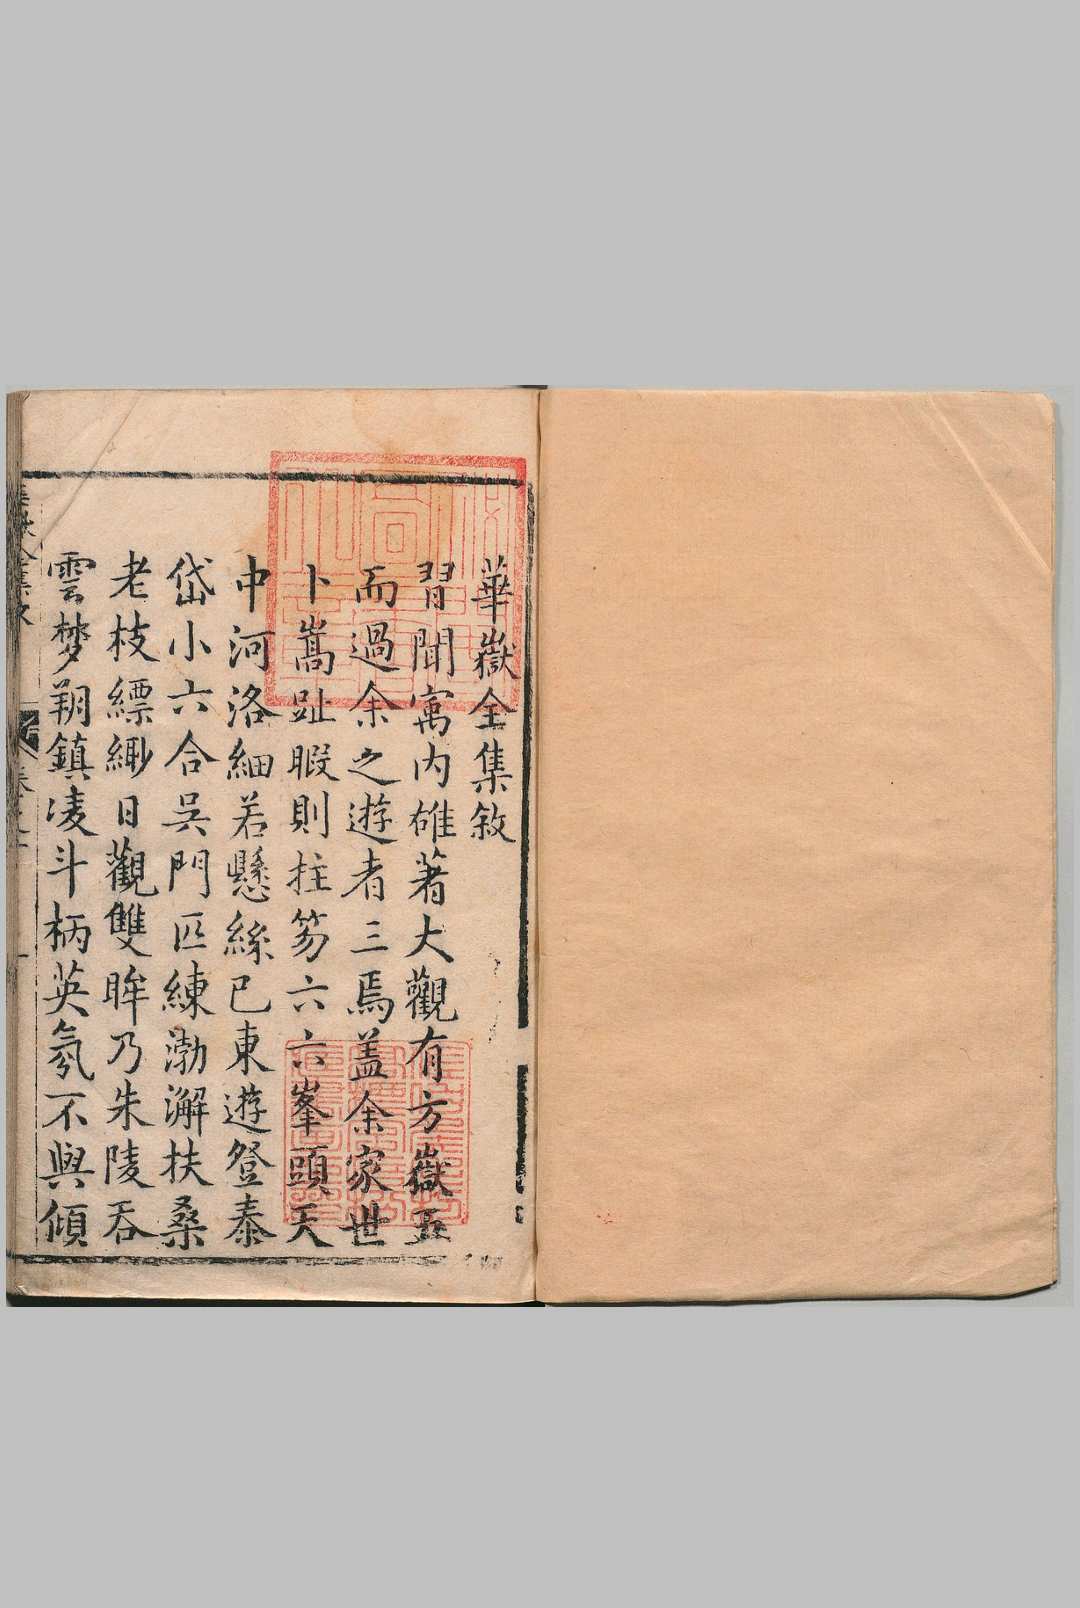 華嶽全集敘
習聞寓内雄著大觀有方嶽五
而過余之遊者三焉盖余家世
卜嵩趾暇則拄笏六六峯頭天
中河洛細若懸絲已東遊登泰
岱小六合吳門匹練渤澥扶桑
老枝縹緲日觀雙眸乃朱陵吞
雲夢翔鎮凌斗柄英氛不與傾